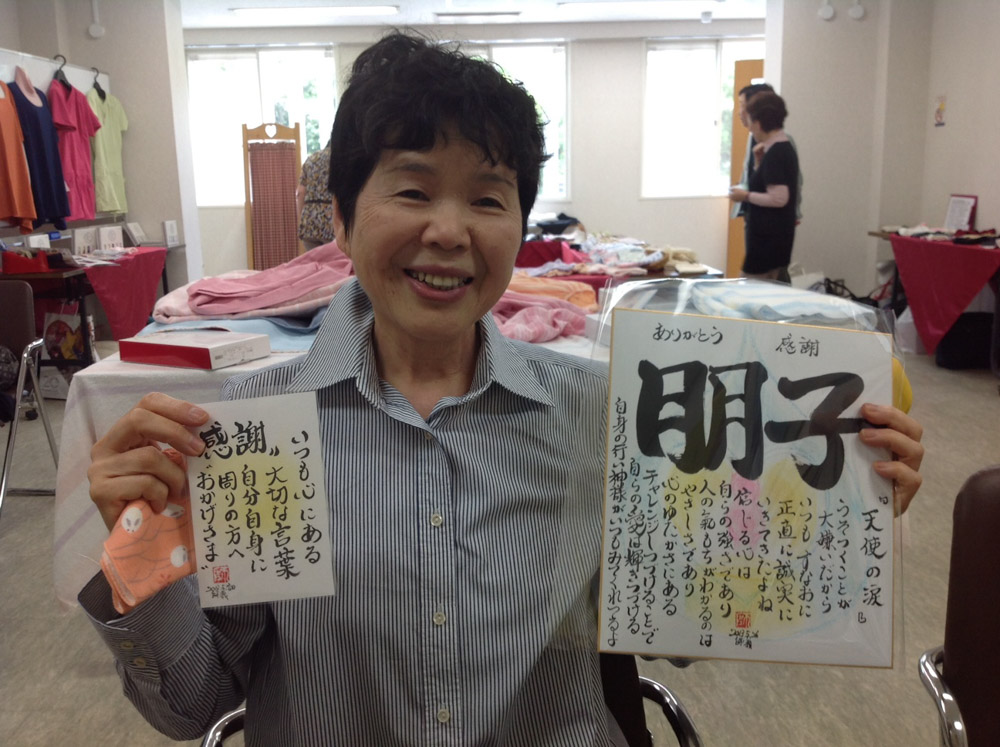 感謝
いつも心にある
大切な言葉
自分自身に
周りの方へ
"おかげさま"
ありがとう
感謝
明子
『天使の涙』
うそつくことが
大嫌いだから
いつもすなおに
正直に誠実に
いきてきたよね
信じる心は
自らの強さであり
人の氣もちがわかるのは
やさしさであり
心のゆたかさにある
チャレンジしつづけることで
自らの魂は輝きつづける
自身の行い神様がいつもみてくれてるよ